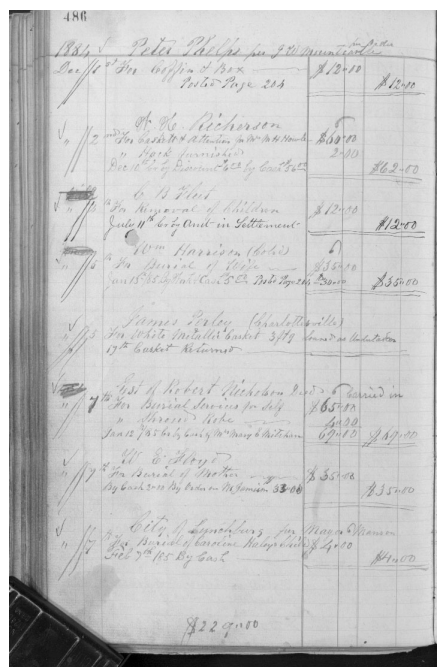 486
1884 Peter Phelps per J W
Dec 1st For Coffin & Box $12-00
Posted Page 204 $12-00
Richerson
2nd For Caskett & Attention for Mr M H $60-00
" Hack furnished 2-00
Dec 10 By Discount 6.00 by Cash 56.00 $62-00
C B Fleet
For Removal of Children $12-00
July 11th By Amt in Settlement $12-00
Wm Harrison (Cold)
5th For Burial of Wife $35-00
Jany 15 85 By Cash 5.00 Posted Page 204 $30-00 $35-00
James Perley (Charlottesville)
5 For White Metallic Casket 3ft9 loaned as Undertaker
19th Casket Returned
Est of Robert Nicholson Decd Carried in
7th For Burial Services for Self $65-00
" Shroud Robe 4-00
Jan 12/85 By Cash of Mrs Mary E Mitcham 69-00 $69-00
W E Floyd
7th For Burial of Mother $35-00
By Cash 2-00 By Order on 33-00 $35-00
City of Lynchburg per Mayor Manson
For Burial of Caroline $4-00
Feb 7th 85 By Cash $4-00
$229-00